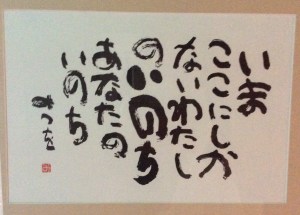 いま
ここにしか
ないわたし
のいのち
あなたの
いのち
みつを